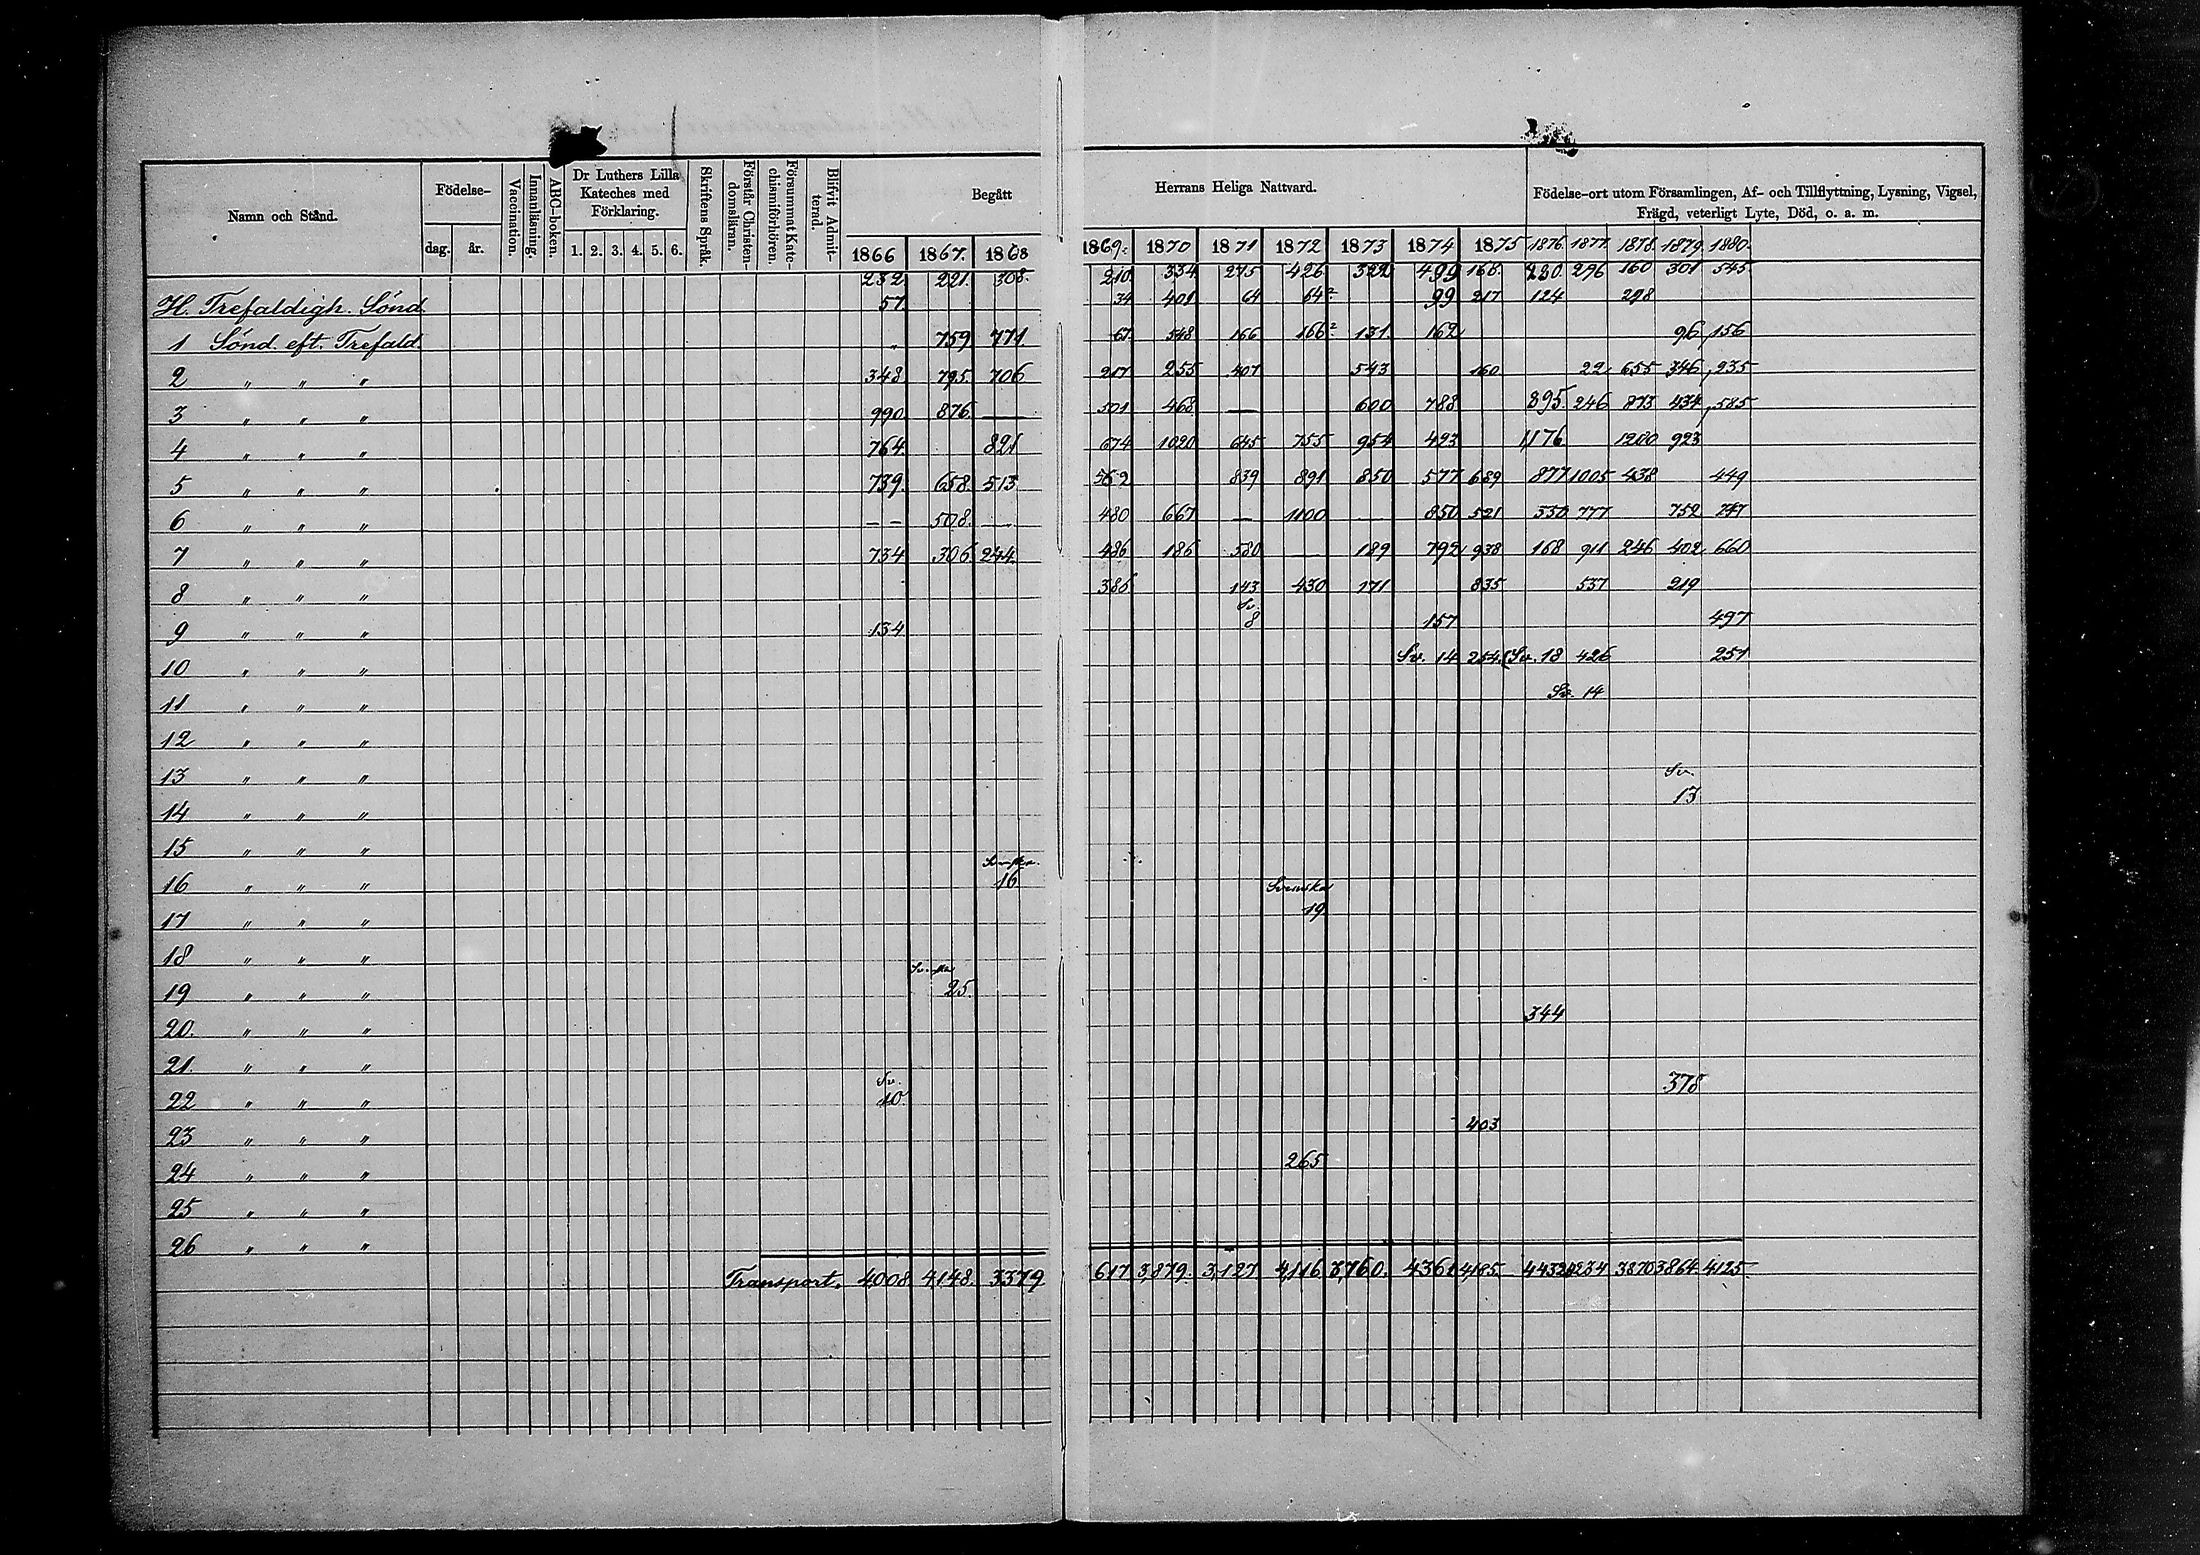 Namn och Stånd.
Födelse-
dag. år.
Vaccination.
Innanläsning.
ABC-boken.
Dr Luthers Lilla
Kateches med
Förklaring.
1. 2. 3. 4. 5. 6.
Skriftens Språk.
Förstår Christen-
domsläran.
Försummat Kate-
chismiförhören.
Blifvit Admit-
terad.
Begått
Herrans Heliga Nattvard.
Födelse-ort utom Församlingen, Af- och Tillflyttning, Lysning, Vigsel,
Frägd, veterligt Lyte, Död, o. a. m.
1866 1867. 1868 1869. 1870 1871 1872 1873 1874 1875 1876. 1877. 1878. 1879. 1880.
232 221. 308. 210. 334 275 426 322 499 168. 280. 296 160 301 545
H. Trefaldigh. Sönd. 57. 34 401 64 64 99 217 124 298
1 Sönd. eft. Trefald. " 759. 771. 67. 548 166 166 131. 162 96 156
2 " " " 348 795. 706 217 255 407 543 160. 22 655 346 235
3 " " " 990 876. — 501 468 — 600 788 895. 246 873 434 585
4 " " " 764. 821 674 1020 645 755 954 423 1176 1280 923
5 " " " 739. 658. 513 562 839 891 850 577 689 877 1005 438 449
6 " " " – – 508. — 480 667 — 1100 — 850 521 350 777 752 747
7 " " " 734 306. 244. 486 186 580 — 189 792 938 168 911 246 402 660
8 " " " 386 143 430 171 835 537 219
Sv.
9 " " " 134 8 157 497
10 " " " Sv. 14 254. (Sv. 18 426 251
11 " " " Sv. 14
12 " " "
13 " " " Sv.
14 " " " 13
15 " " "
16 " " " 16 Svenska
17 " " " 19
18 " " "
19 " " " 25.
20. " " " 344
21. " " "
Sv. 378
22 " " " 10
23 " " " 403
24 " " " 265
25 " " "
26 " " "
Transport. 4008 4,148. 3379 617 3,879. 3,127 4,116 3,760. 4361 4,185. 4432 4234 3870 3864. 4125